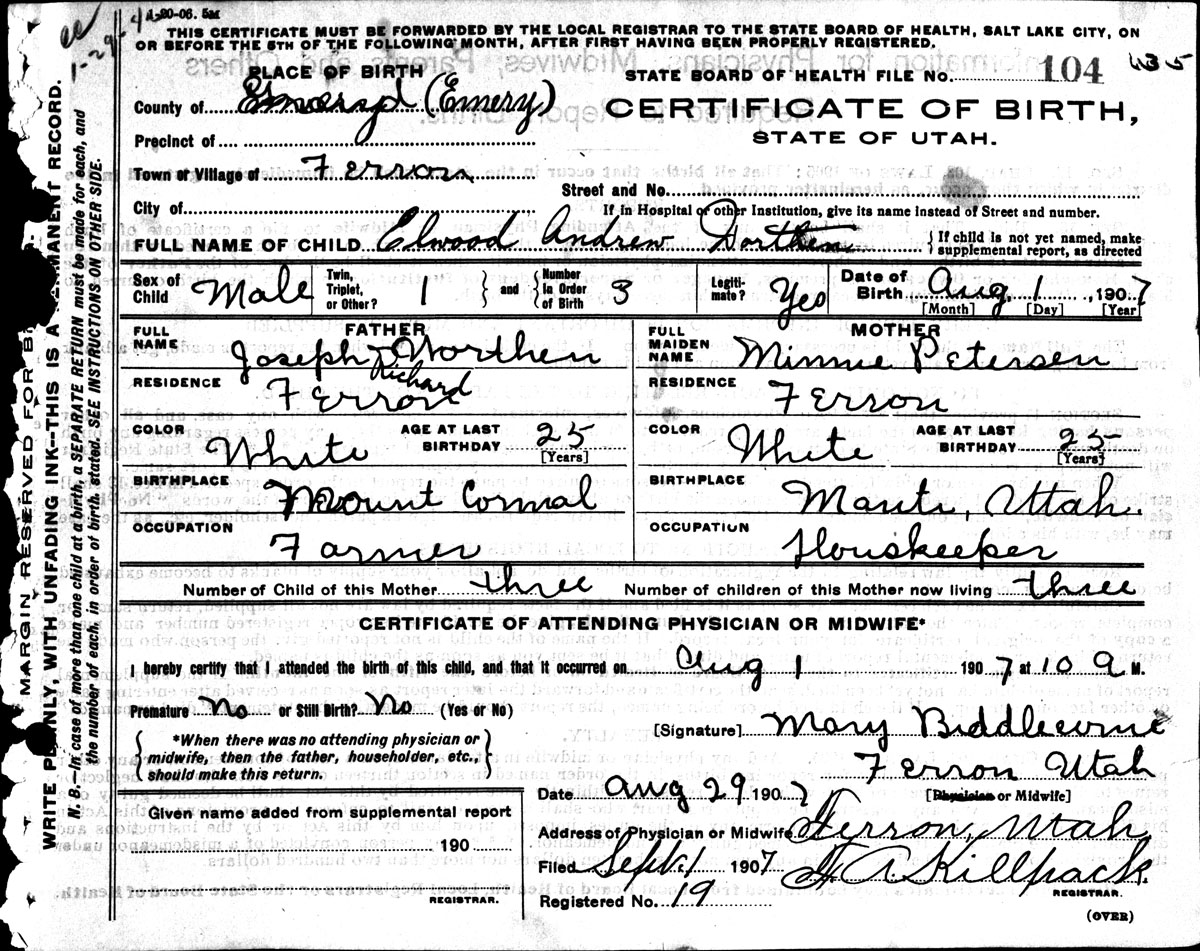 1-20-06. 5M
THIS CERTIFICATE MUST BE FORWARDED BY THE LOCAL REGISTRAR TO THE STATE BOARD OF HEALTH, SALT LAKE CITY, ON
OR BEFORE THE 5TH OF THE FOLLOWING MONTH, AFTER FIRST HAVING BEEN PROPERLY REGISTERED.
MARGIN RESERVED FOR
WRITE PLAINLY WITH UNFADING INK--THIS IS A PERMANENT RECORD.
N. B. In case of more than one child at a birth, a SEPARATE RETURN must be made for each, and
the number of each, in order of birth, stated. SEE INSTRUCTIONS ON OTHER SIDE.
PLACE OF BIRTH
STATE BOARD OF HEALTH FILE No. 104
County of (Emery)
CERTIFICATE OF BIRTH,
STATE OF UTAH.
Precinct of
Town or Village of Ferron
Street and No.
City of
If in Hospital or other Institution, give its name instead of Street and number.
FULL NAME OF CHILD Elwood Andrew Worthen
{ If child is not yet named, make
supplemental report, as directed
Sex of Child Male
Twin, Triplet, or Other? 1 } and { Number in Order of Birth 3
Legitimate? Yes
Date of Birth Aug. 1, 1907
[Month] [Day] [Year]
FATHER
FULL NAME Joseph Richard Worthen
RESIDENCE Ferron
COLOR White AGE AT LAST BIRTHDAY 25
[Years]
BIRTHPLACE Mount Cormal
OCCUPATION Farmer
MOTHER
FULL MAIDEN NAME Minnie Petersen
RESIDENCE Ferron
COLOR White AGE AT LAST BIRTHDAY 25
[Years]
BIRTHPLACE Manti, Utah.
OCCUPATION Houskeeper
Number of Child of this Mother three Number of children of this Mother now living three
CERTIFICATE OF ATTENDING PHYSICIAN OR MIDWIFE*
I hereby certify that I attended the birth of this child, and that it occurred on Aug 1 1907 at 10 a M.
Premature No or Still Birth? No (Yes or No)
{ *When there was no attending physician or
midwife, then the father, householder, etc.,
should make this return. }
[Signature] Mary Biddlecome
Ferron Utah
[Physician or Midwife]
Date Aug 29 1907
Given name added from supplemental report
190
REGISTRAR.
Address of Physician or Midwife Ferron, Utah
Filed Sept. 1 1907 Killpack
REGISTRAR.
Registered No. 19
(OVER)